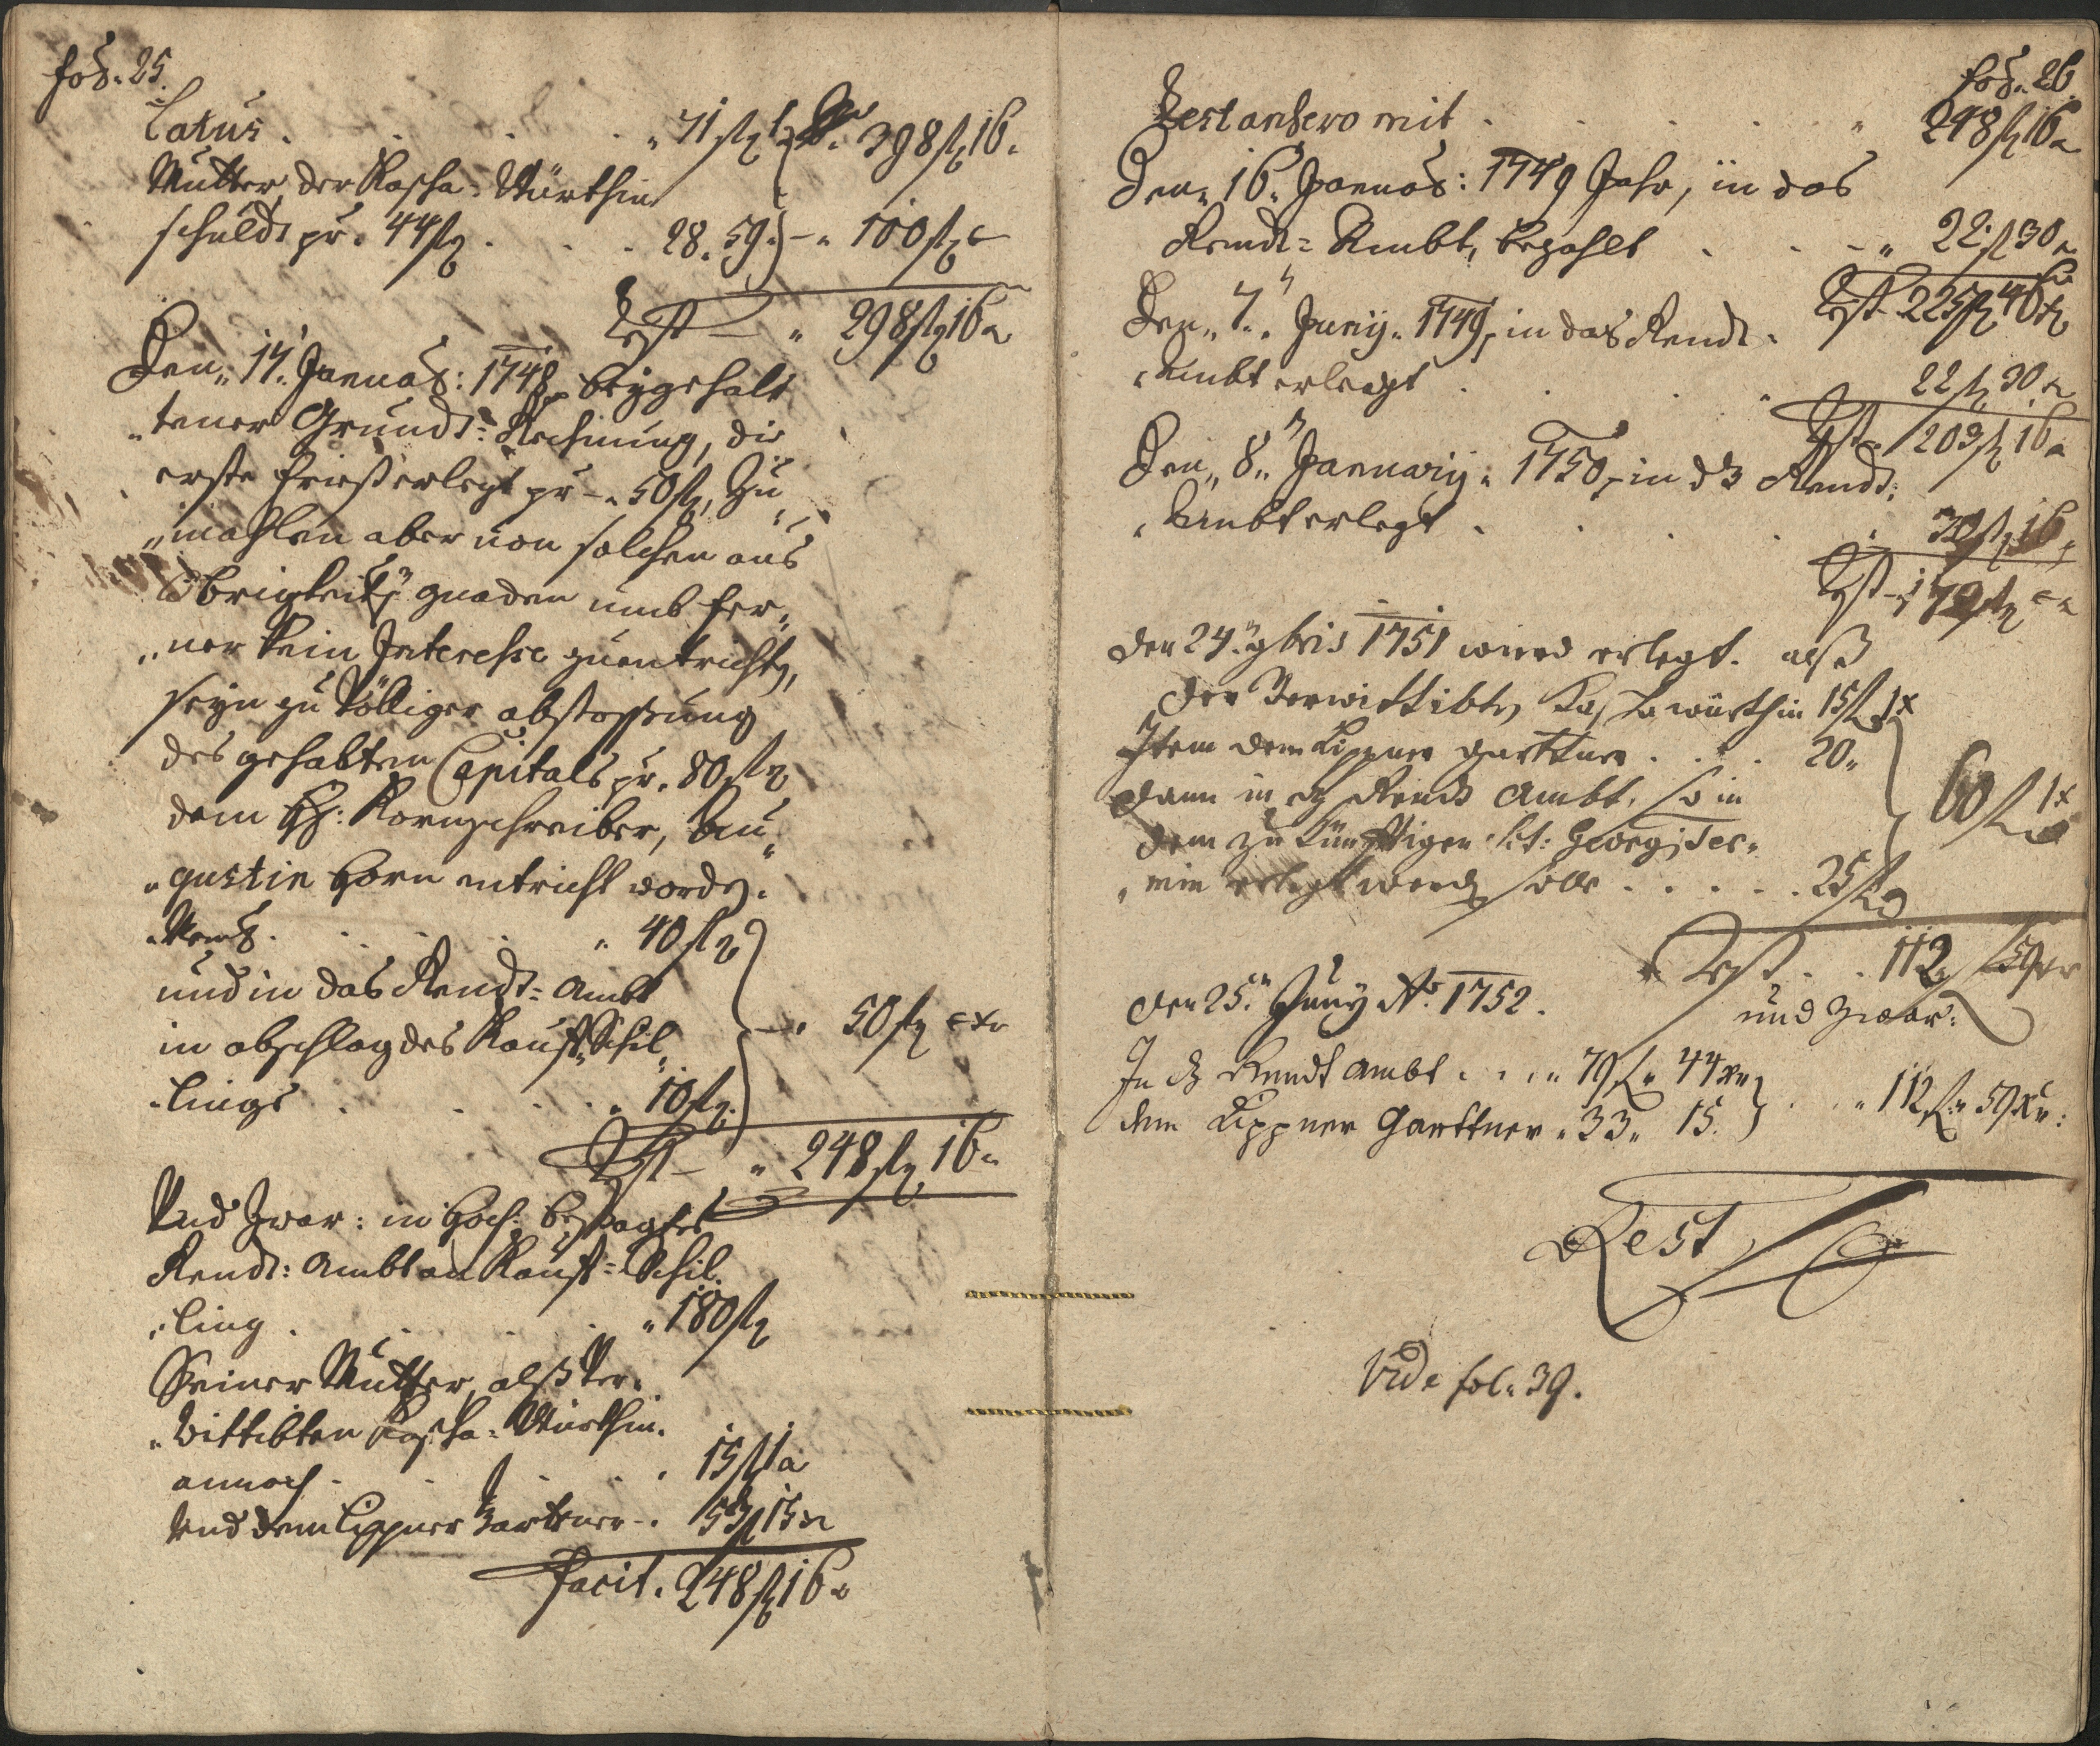 fol: 25.
Latus . . . . „ 71 fl 1 x 398 fl 16 x
Mutter, der Kascha-Würthin
schuldt pr. 44 fl . . . 28. 59. – „ 100 fl x
Rest – „ 298 fl 16 x
Den „ 17. Januar: 1748, beygehalt
„tener Grundt-Rechnung, die
erste Frist erlegt pr – „ 50 fl, Zu
„mahlen aber von solchen aus
Obrigkeitl: gnaden umb fer„
„ner kein Interesse zuentrichten,
seyn zu Völliger abstossung
des gehabten Capitals pr. 80 fl
dem H: Kornschreiber, Au„
„gustin Horn entricht worden.
„ 40 fl
und in das Rendt-Ambt
in abschlag des Kauf-Schil„ – „ 50 fl x
„lings . . . . „ 10 fl
Rest – „ 248 fl 16 x
Und Zwar: in Hoch: besagtes
Rendt: Ambt an Kauf-Schil„
„ling . . . . „ 180 fl
Seiner Mutter, alß Ver„
„wittibten Kascha-Würthin.
annoch . . . . 15 fl 1 x
Und dem Lippner Gartner – „ 53 fl 15 x
Facit. 248 fl 16 x
fol: 26.
Rest anhero mit . . . . „ 248 fl 16 x
Den „ 16. Januar: 1749 Jahr, in das
Rendt-Ambt, bezahlt . . – „ 22 fl 30 x
Rest – 225 fl 46 x
Den „ 7. „ Junij „ 1749, in das Rendt-
„Ambt erlegt . . . „ 22 fl 30 x
Rest – 203 fl 16 x
Den „ 8. „ Januarij „ 1750, in dz Rendt:
„Ambt erlegt . . . . 30 fl 16 x
Rest – 173 fl x
den 24. 9bris 1751 wird erlegt. alß
der Verwittibten Kascha würthin 15 fl 1 x
Item dem Lippner gärttner . . . 20 „
dann in dz Rendt Ambt, so in 60 fl 1 x
dem zu künfftigen St: Georgi Ter„
„min erlegt werden solle . . . . . 25 fl
Rest . . 112 fl 59 xr
und Zwar:
den 25. Juny Ao. 1752.
In dz Rendt Ambt . . . „ 79 fl „ 44 xr
dem Lippner Garttner „ 33 „ 15. . . „ 112 fl „ 59 xr:
Rest
Vide fol: 39.